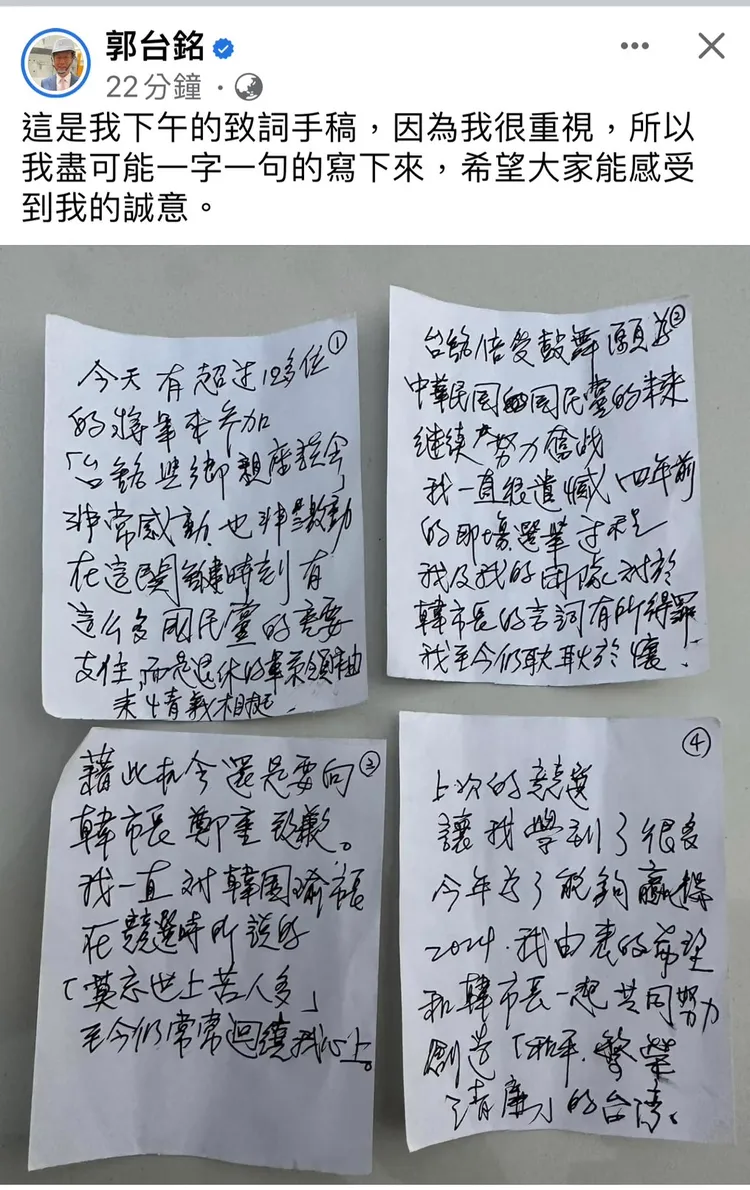 郭台銘
22分鐘
這是我下午的致詞手稿，因為我很重視，所以
我盡可能一字一句的寫下來，希望大家能感受
到我的誠意。
①
今天有超过12多位
的將軍來参加
「台銘與鄉親座談会」
非常感動也非常激動
在這関鍵時刻有
這么多國民黨的重要
支住,而是退休的軍系領袖
来情義相挺.
②
台銘倍受鼓舞願为
中華民国和国民黨的未来
继续努力奮战
我一直很遺憾,四年前
的那場選举过程
我及我的团隊対於
韓市長的言詞有所得罪
我至今仍耿耿於懷.
③
藉此机会還是要向
韓市長鄭重致歉。
我一直対韓国瑜市長
在競選時所說的
「莫忘世上苦人多」
至今仍常常迴繞我心上。
④
上次的競選
讓我學到了很多
今年为了能夠贏得
2024.我由衷的希望
和韓市長一起共同努力
創造「和平.繁榮
清廉」的台湾.